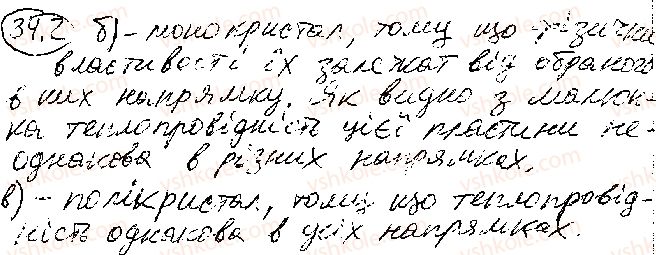 34.2 б) - монокристал, тому що фізичні
властивості їх залежат від обраного
в них напрямку. Як видно з малюн-
ка теплопровідність цієї пластини не-
однакова в різних напрямках.
в) - полікристал, тому що теплопровід-
ність однакова в усіх напрямках.